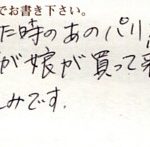 でお書き下さい。
た時のあのパリ
が娘が買って
みです.